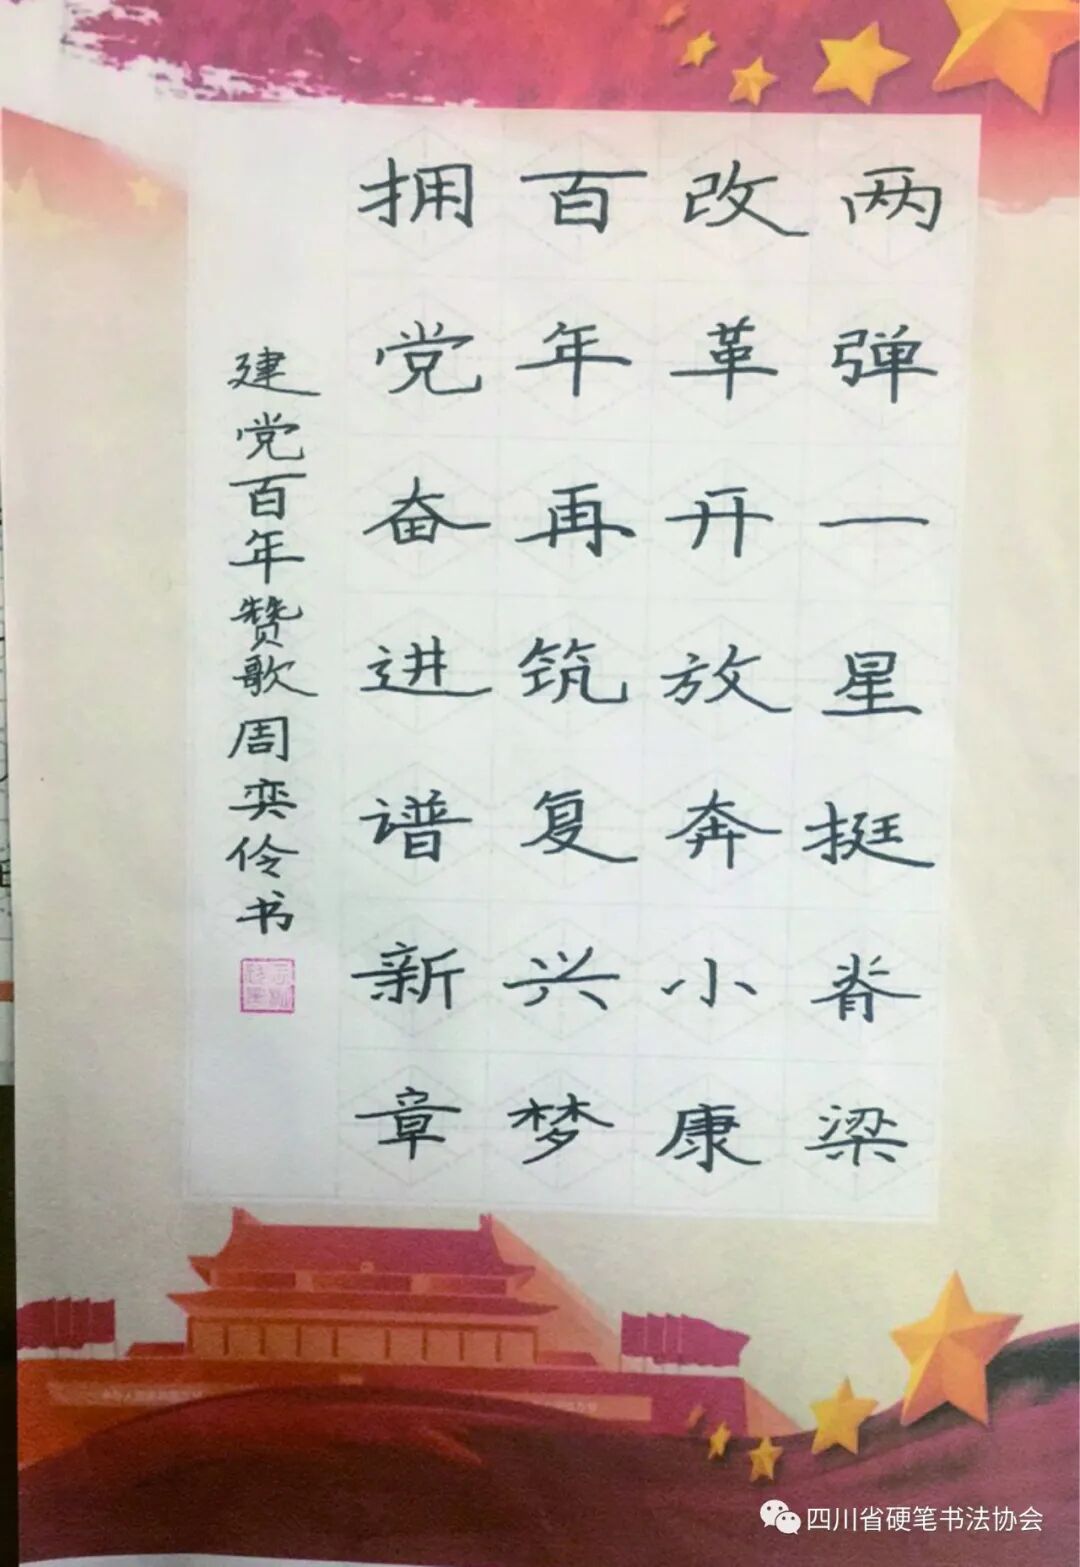 两弹一星挺脊梁
改革开放奔小康
百年再筑复兴梦
拥党奋进谱新章
建党百年赞歌周奕伶书
四川省硬笔书法协会